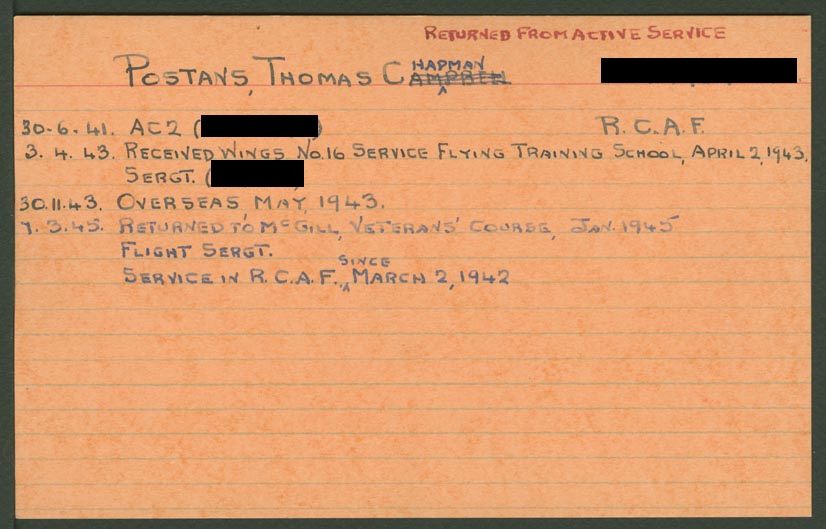 RETURNED FROM ACTIVE SERVICE
POSTANS, THOMAS CHAPMAN CAMPBELL
30-6-41. AC2 ( ) R.C.A.F.
3. 4. 43. RECEIVED WINGS No. 16 SERVICE FLYING TRAINING SCHOOL, APRIL 2, 1943.
SERGT. (
30.11.43. OVERSEAS MAY, 1943.
7. 3. 45. RETURNED TO McGILL, VETERANS' COURSE, JAN. 1945
FLIGHT SERGT.
SERVICE IN R.C.A.F. SINCE MARCH 2, 1942